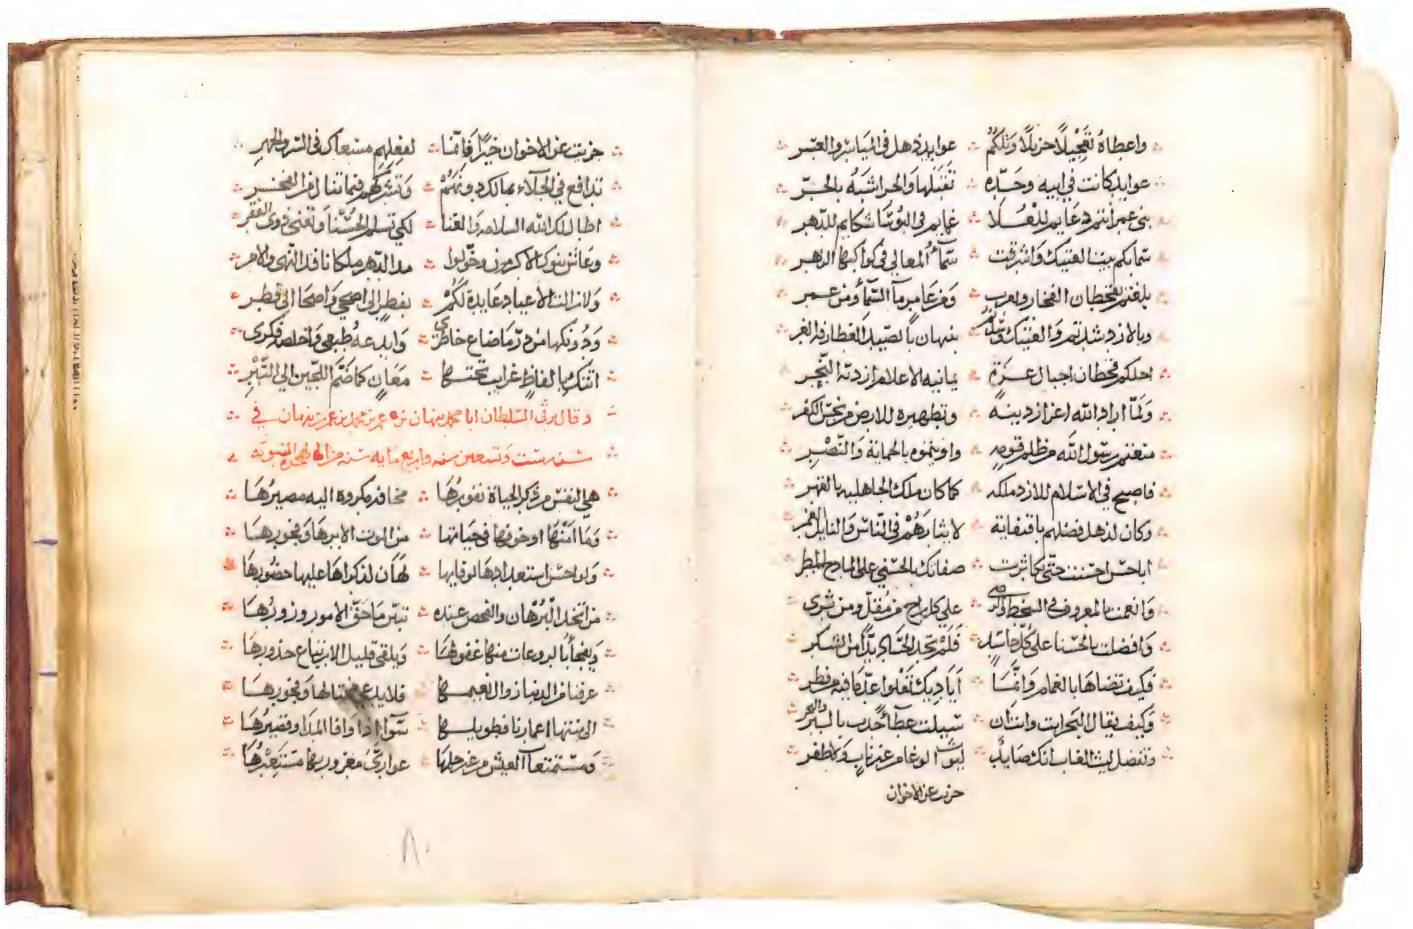 واعطاهُ تعجيلاً جزيلاً وتلكمُ عوايد ذهل في المياسر والعسر
عوايد كانت في ابيه وجده تقبلها والحر اشبه بالحر
بني عمر انتم دعايم للعلا غمايم في البوسا شكايم للدهر
سمابكم بيت العتيك واشرقت سمآء المعالي في كواكبها الزهر
بلغتم لقحطان الفخار ويعرب ومزعامر مآ السمآء ومن عمر
وبالازد شدتم والعتيك بنبهان بالصيد الغطارفة الغر
احلكم قحطان اجبال عزة يمانية الاعلام ازدية النجر
ولمّا اراد الله اعزاز دينه وتطهيره للارض من نجس الكفر
منعتم رسول الله من ظلم قومه واويتموه بالحماية والنصر
فاصبح في الاسلام للازد ملكه كما كان ملك الجاهلية بالقهر
وكان لذهل فضلهم باقتفاية لاثارهم في الناس والنايل الغمر
ابا حسن احسنت حتى تكاثرت صفاتك الحسنى على المادح المطر
وانعمت بالمعروف في السخط والرضى على كل من مقل ومن مثرى
وافضلت بالحسنا على كل حاسد فلم يجد الحساد بدّاً من الشكر
فكيف تضاها بالغمام وانما اياديك تعلوا عد كافيه من قطر
وكيف يقال البحر انت وانت ان سيبلت عطآءً جدت بالبر والبحر
وتفضل ليث الغاب انك صايد ليوث الوغا من غير ناب ولا ظفر
حزيت عن الاخوان
حزيت عن الاخوان خيرًا فانما لفعلهم مسعاك في السر والجهر
تدافع في الجلآء بمالك دونهم وتشركهم فيما تنال من الفخر
اطال لك الله السلامة والغنا لكي تسلم الحسنا وتغني ذوى الفقر
وعاش بنوك الاكرمون وخولوا مدا الدهر ملكا نافذ النهى والامر
ولا زالت الاعياد عايدة لكم بفطر الى اضحى واضحا الى فطر
ودونكها من در ما ضاع خاطرى وابدعه طبعي واخلصه فكرى
اتتك بالفاظ غرايب تحتها معان كما ضم اللجين الى التبر
وقال يرثي السلطان ابا محمد نبهان بن عمر بن محمد بن عمر بن نبهان في
سنة ست وتسعين سنه واربع مايه سنه من الهجرة النبوية
هي النفس من ذكر الحياة نفورها مخافة مكروه اليه مصيرها
وما امنها او خوفها في حياتها من الموت الا برها وفجورها
ولو احسن استعدادها لوفاتها لهان لذكراها عليها حضورها
من اتخذ البرهان والفحص عنده تبين ما حق الامور وزورها
ويفجأ بالروعات منها غفولها ويلقى قليل الارتياع حذورها
عرفنا من الدنيا زوال نعيمها فلا يدعي مختالها وفخورها
الى منتها اعمارنا فطويلها سوآء اذا وافا المدا وقصيرها
ومستمتعآت العيش من غير حلها عوارى مغرور بها مستعيرها
٨٠